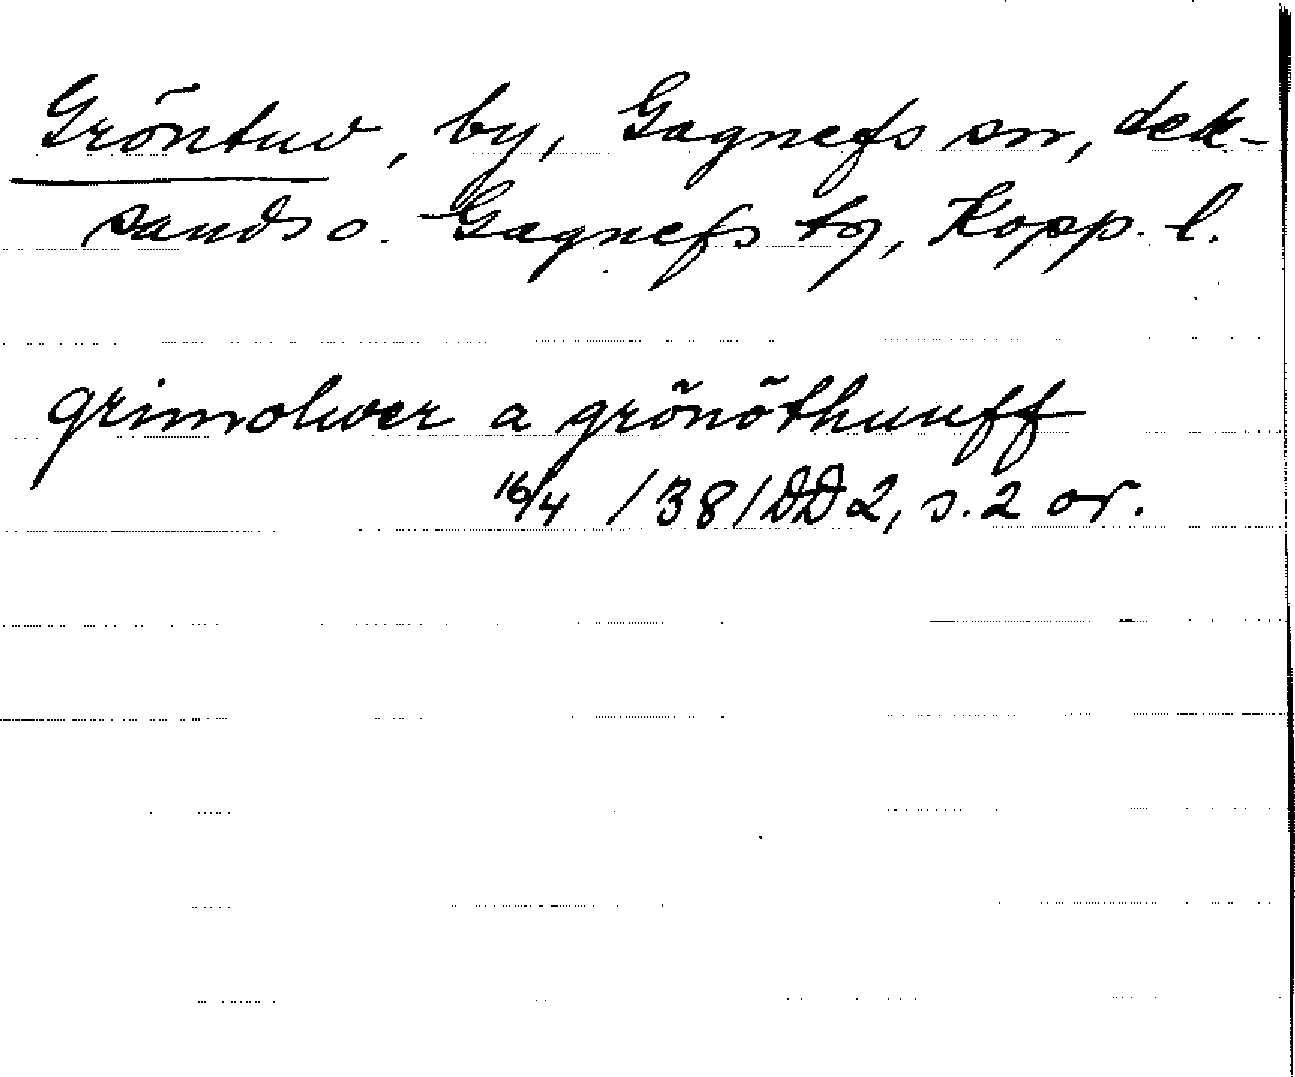 Gröntuv, by, Gagnefs sn, Lek-
sands o. Gagnefs tg, Kopp. l.
grimolwer a grönöthuuff
16/4 1381 DD 2, s. 2 or.